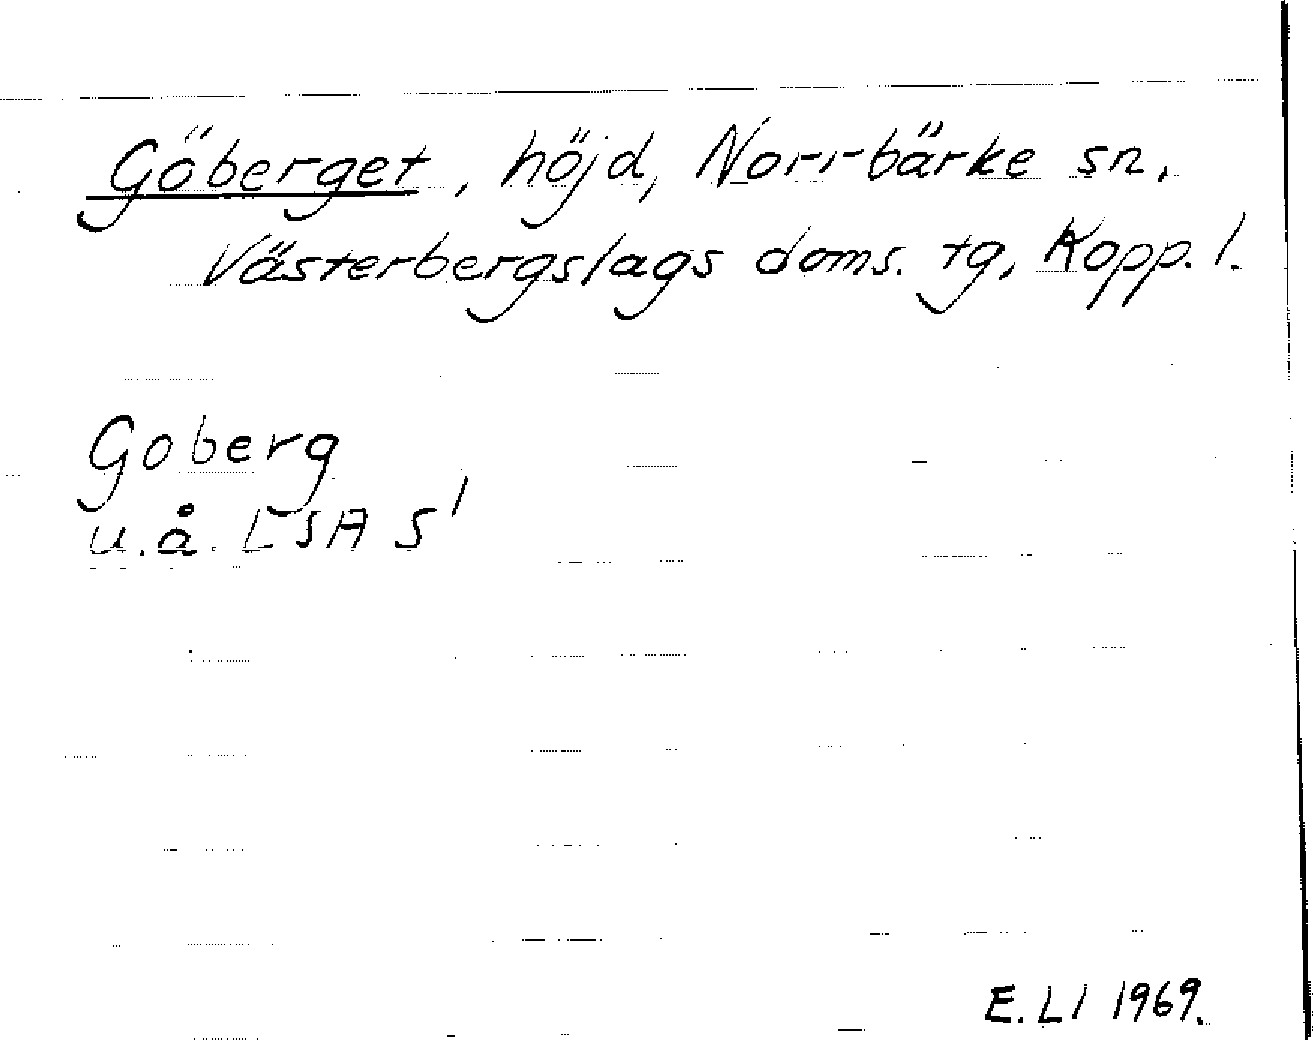 Göberget, höjd, Norrbärke sn.
Västerbergslags doms. tg, Kopp. l.
Goberg
u.å. LSA S'
E. LI 1969.